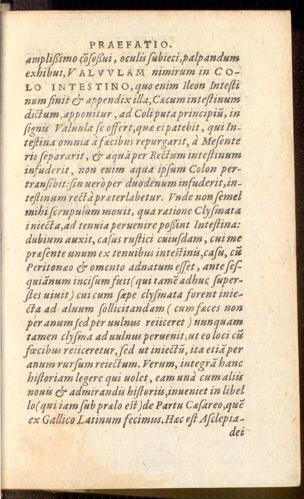 PRAEFATIO.
amplißimo cõseßui, oculis subieci, palpandum
exhibui, VALVVLAM nimirum in CO-
LO INTESTINO, quo enim Ileon Intesti
num finit & appendix illa, Cæcum intestinum
dictum, apponitur, ad Coli puta principiũ, in
signis Valuula se offert, quæ ei patebit, qui In-
testina omnia à fæcibus repurgarit, à Mesente
rio separarit, & aquã per Rectum intestinum
infuderit, non enim aqua ipsum Colon per-
transibit: sin uerò per duodenum infuderit, in-
testinum rectà præterlabetur. Vnde non semel
mihi scrupulum mouit, qua ratione Clysmata
iniecta, ad tenuia peruenire poßint Intestina:
dubium auxit, casus rustici cuiusdam, cui me
præsente unum ex tenuibus intestinis, casu, cũ
Peritonæo & omento adnatum esset, ante ses-
quiãnum incisum fuit (qui tamẽ adhuc super-
stes uiuit) cui cum sæpe clysmata forent inie-
cta ad aluum sollicitandam (cum fæces non
per anum sed per uulnus reijceret) nunquam
tamen clysma ad uulnus peruenit, ut eo loci cũ
fœcibus reijceretur, sed ut iniectũ, ita etiã per
anum rursum reiectum. Verum, integrã hanc
historiam legere qui uolet, eam unà cum alijs
nouis & admirandis historijs, inueniet in libel
lo (qui iam sub prælo est) de Partu Cæsareo, quẽ
ex Gallico Latinum fecimus. Hæc est Asclepia-
dei